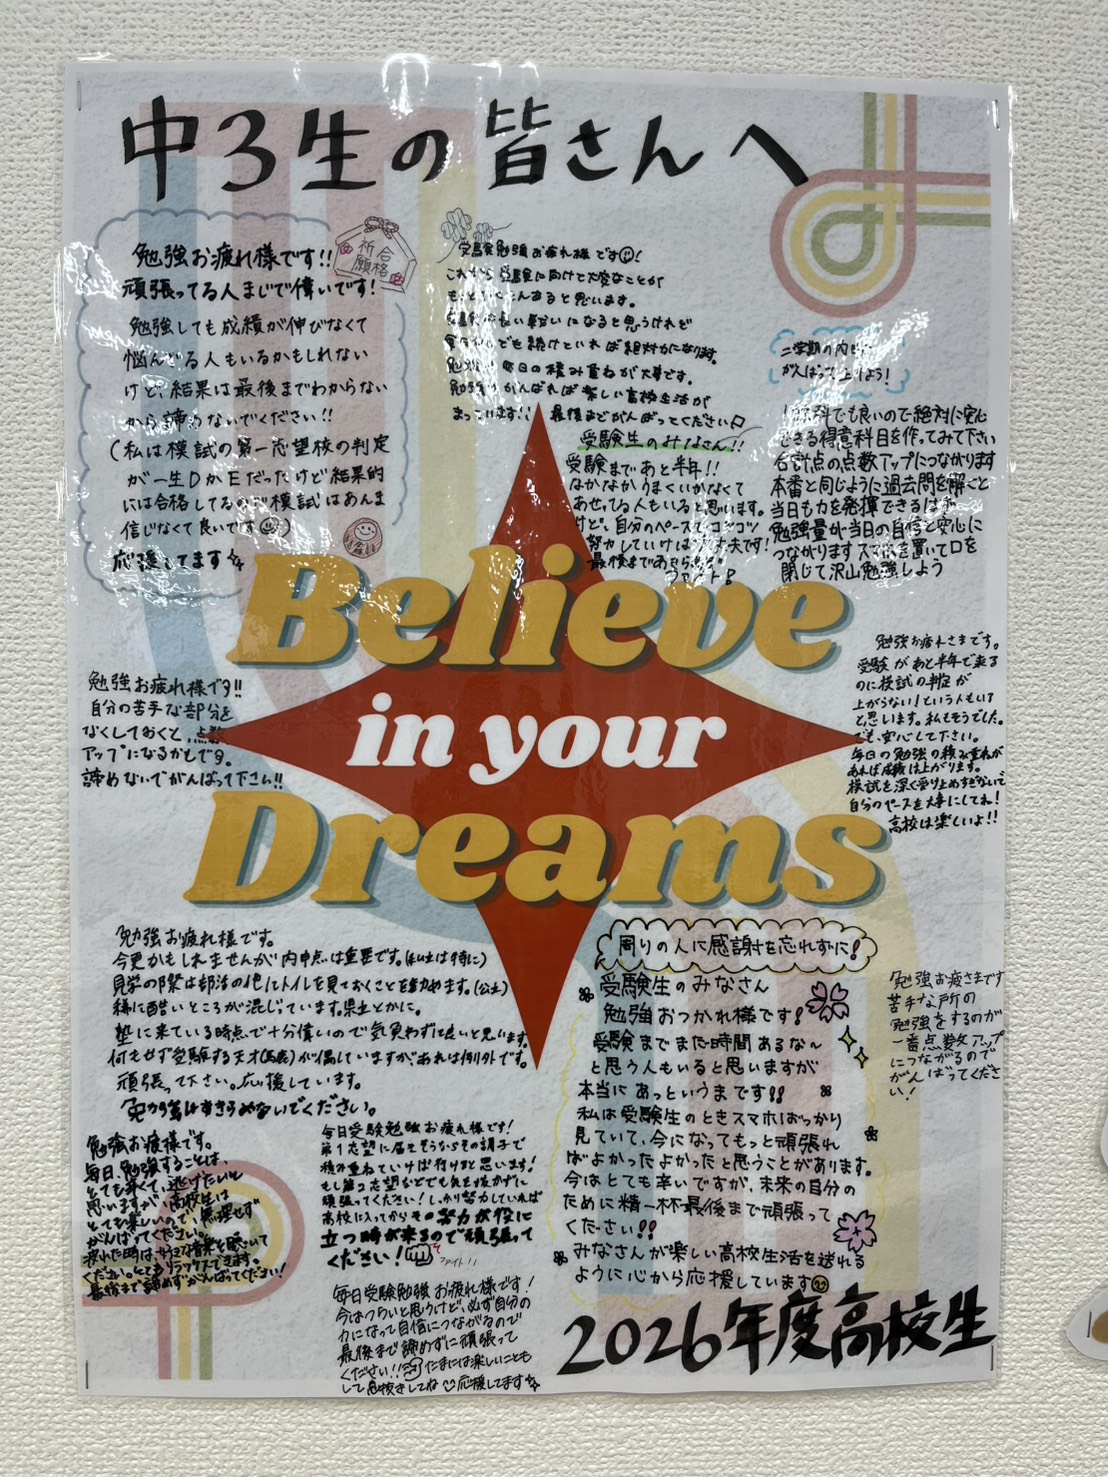 中3生の皆さんへ
勉強お疲れ様です!!
頑張ってる人まじで偉いです!
勉強しても成績が伸びなくて
悩んでる人もいるかもしれない
けど、結果は最後までわからない
から諦めないでください!!
(私は模試の第一志望校の判定
が一生DかEだったけど結果的
には合格してるので模試はあんま
信じなくて良いです)
応援してます
合格
祈願
受験勉強お疲れ様です!
これから受験に向けて大変なことが
もっとたくさんあると思います。
受験は長い戦いになると思うけれど
でも続けていれば絶対力になります。
勉強は毎日の積み重ねが大事です。
勉強をがんばれば楽しい高校生活が
まっています!! 最後までがんばってください
受験生のみなさん!!
受験まであと半年!!
なかなかうまくいかなくて
あせってる人もいると思います。
けど、自分のペースでコツコツ
努力していけば大丈夫です!
最後まであきらめず
ファイト!
二学期の内申
がんばって上げよう!
1教科でも良いので絶対に安心
できる得意科目を作ってみて下さい
合計点の点数アップにつながります
本番と同じように過去問を解くと
当日も力を発揮できるはず
勉強量が当日の自信と安心に
つながります スマホを置いて口を
閉じて沢山勉強しよう
Believe
in your
Dreams
勉強お疲れ様です!!
自分の苦手な部分を
なくしておくと、点数
アップになるかもです。
諦めないでがんばって下さい!!
勉強お疲れさまです。
受験があと半年で来る
のに模試の判定が
上がらない!という人もいる
と思います。私もそうでした。
でも、安心して下さい。
毎日の勉強の積み重ねが
あれば成績は上がります。
模試を深く受け止めすぎないで
自分のペースを大事にしてね!
高校は楽しいよ!!
勉強お疲れ様です。
今更かもしれませんが内申点は重要です。(私立は特に)
見学の際は部活の他にトイレを見ておくことを勧めます。(公立)
稀に酷いところが混じっています。県立とかに。
塾に来ている時点で十分偉いので気負わずに良いと思います。
何もせず受験する天才(馬鹿)が属していますが、あれは例外です。
頑張って下さい。応援しています。
周りの人に感謝を忘れずに!
受験生のみなさん
勉強おつかれ様です!
受験までまだ時間あるな〜
と思う人もいると思いますが
本当にあっというまです!!
私は受験生のときスマホばっかり
見ていて、今になってもっと頑張れ
ばよかったよかったと思うことがあります。
今はとても辛いですが、未来の自分の
ために精一杯最後まで頑張って
ください!!
みなさんが楽しい高校生活を送れる
ように心から応援しています
勉強お疲さまです
苦手な所の
勉強をするのが
一番点数アップ
につながるので
がんばってくださ
い!
勉強お疲様です。
毎日、勉強することは、
とても辛くて、逃げたいと
思いますが、高校生は
とても楽しいので、無理せず
がんばってください。
疲れた時は、好きな音楽を聴いて
ください。とてもリラックスできます。
最後まで諦めずがんばってください!
毎日受験勉強お疲れ様です!
第1志望に届きそうならその調子で
積み重ねていけば行けると思います!
もし第2志望などでも気を抜かずに
頑張ってください!しっかり努力していれば
高校に入ってからその努力が役に
立つ時が来るので頑張って
ください!
ファイト!!
毎日受験勉強お疲れ様です!
今はつらいと思うけど、必ず自分の
力になって自信につながるので
最後まで諦めずに頑張って
ください!! たまには楽しいことも
して息抜きしてね 応援してます
2026年度高校生